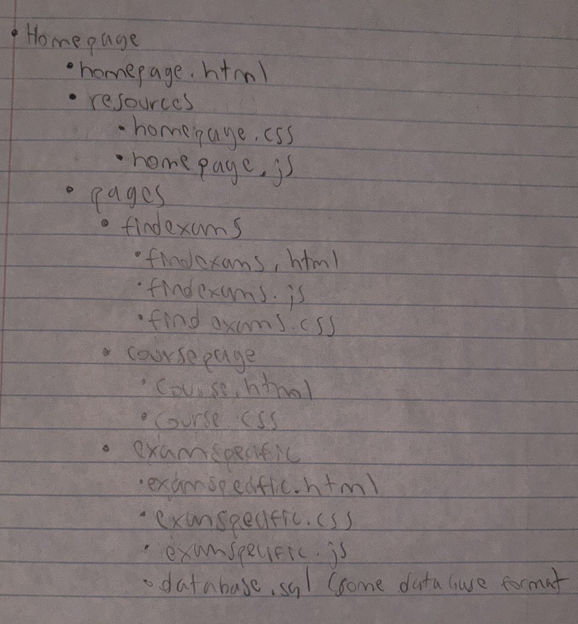 • Homepage
• homepage.html
• resources
• homepage.css
• homepage.js
• pages
• findexams
• findexams.html
• findexams.js
• findexams.css
• coursepage
• course.html
• course css
• examspecific
• examspecific.html
• examspecific.css
• examspecific.js
• database.sql (some database format